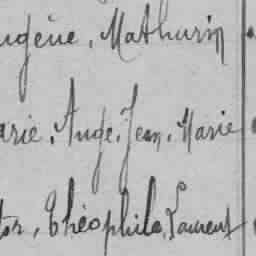 ugène, Mathurin
arie, Ange, Jean, Marie
tor, Théophile, Laurent